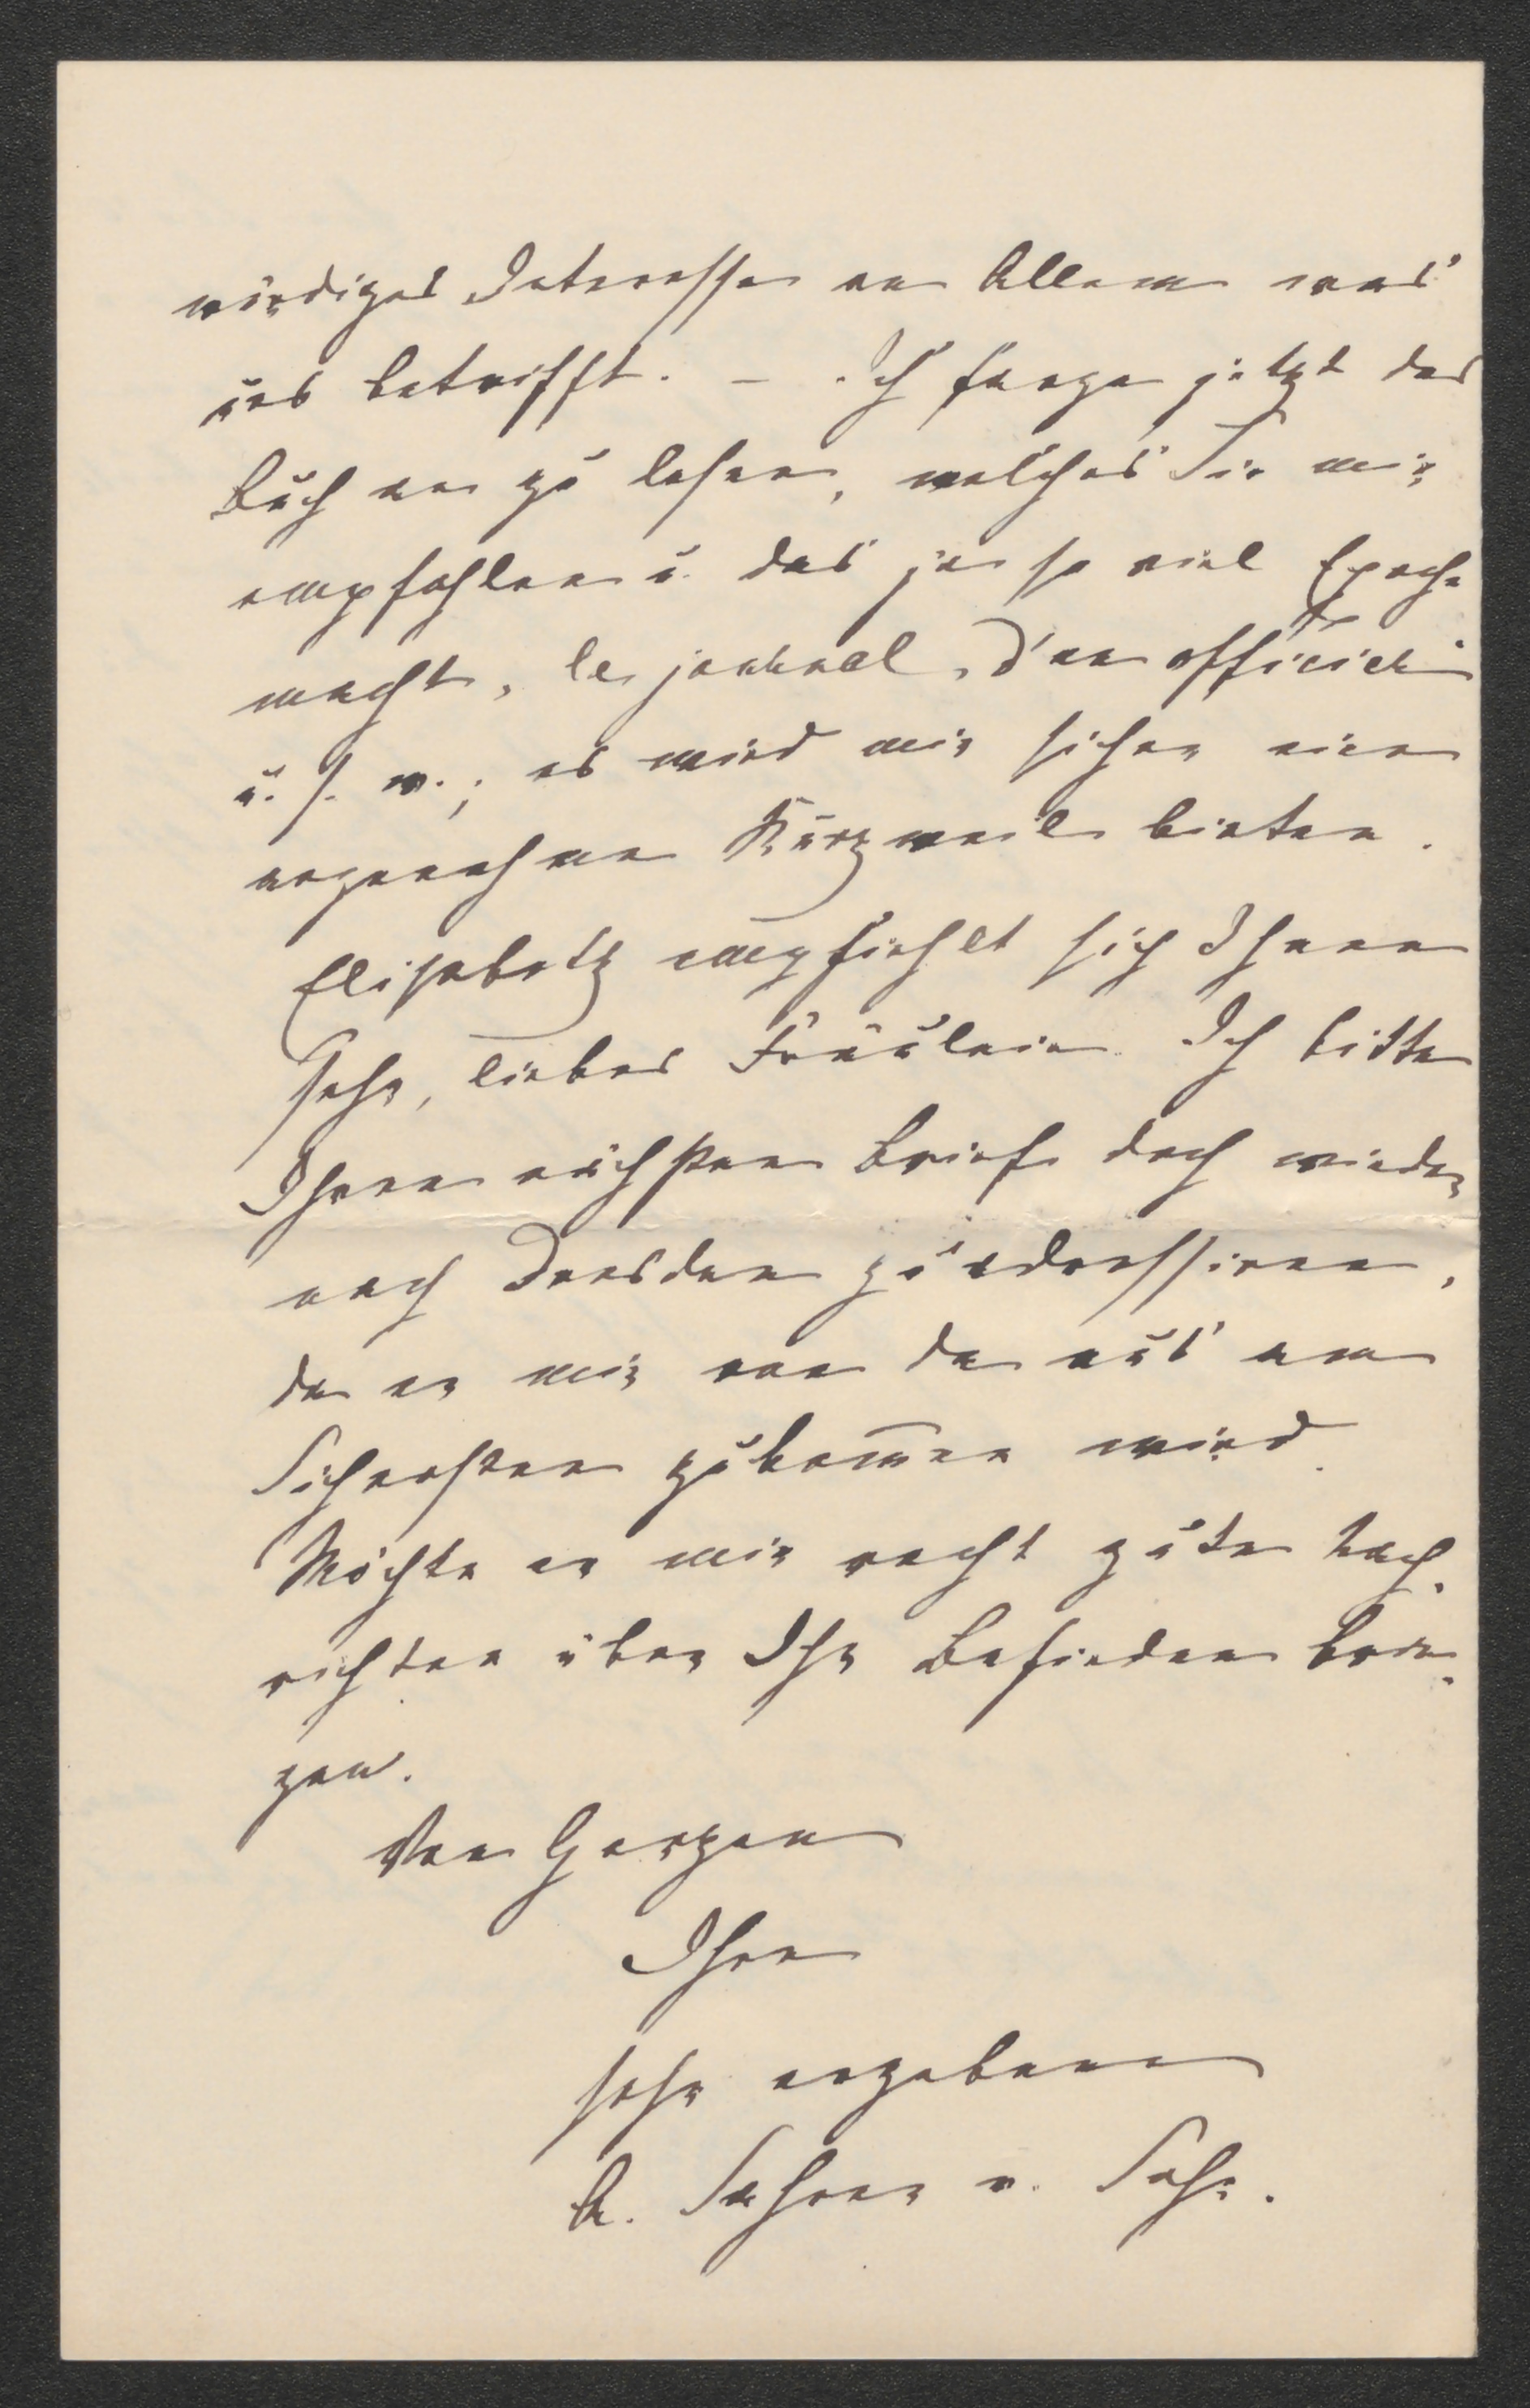 würdiges Interesse an Allem was
uns betrifft. – Ich fange jetzt das
Buch an zu lesen, welches Sie mir
empfohlen u. das ja so viel Epoche
macht, le journal d'un officier
u. s. w.; es wird mir sicher eine
angenehme Kurzweil bieten.
Elisabeth empfiehlt sich Ihnen
sehr, liebes Fräulein. Ich bitte
Ihren nächsten Brief doch wieder
nach Dresden zu adressiren,
da er mir von da aus am
Sichersten zukom̄en wird.
Möchte er mir recht gute Nach-
richten über Ihr Befinden brin-
gen.
Von Herzen
Ihre
sehr ergebene
A. Sahrer v. Sahr.